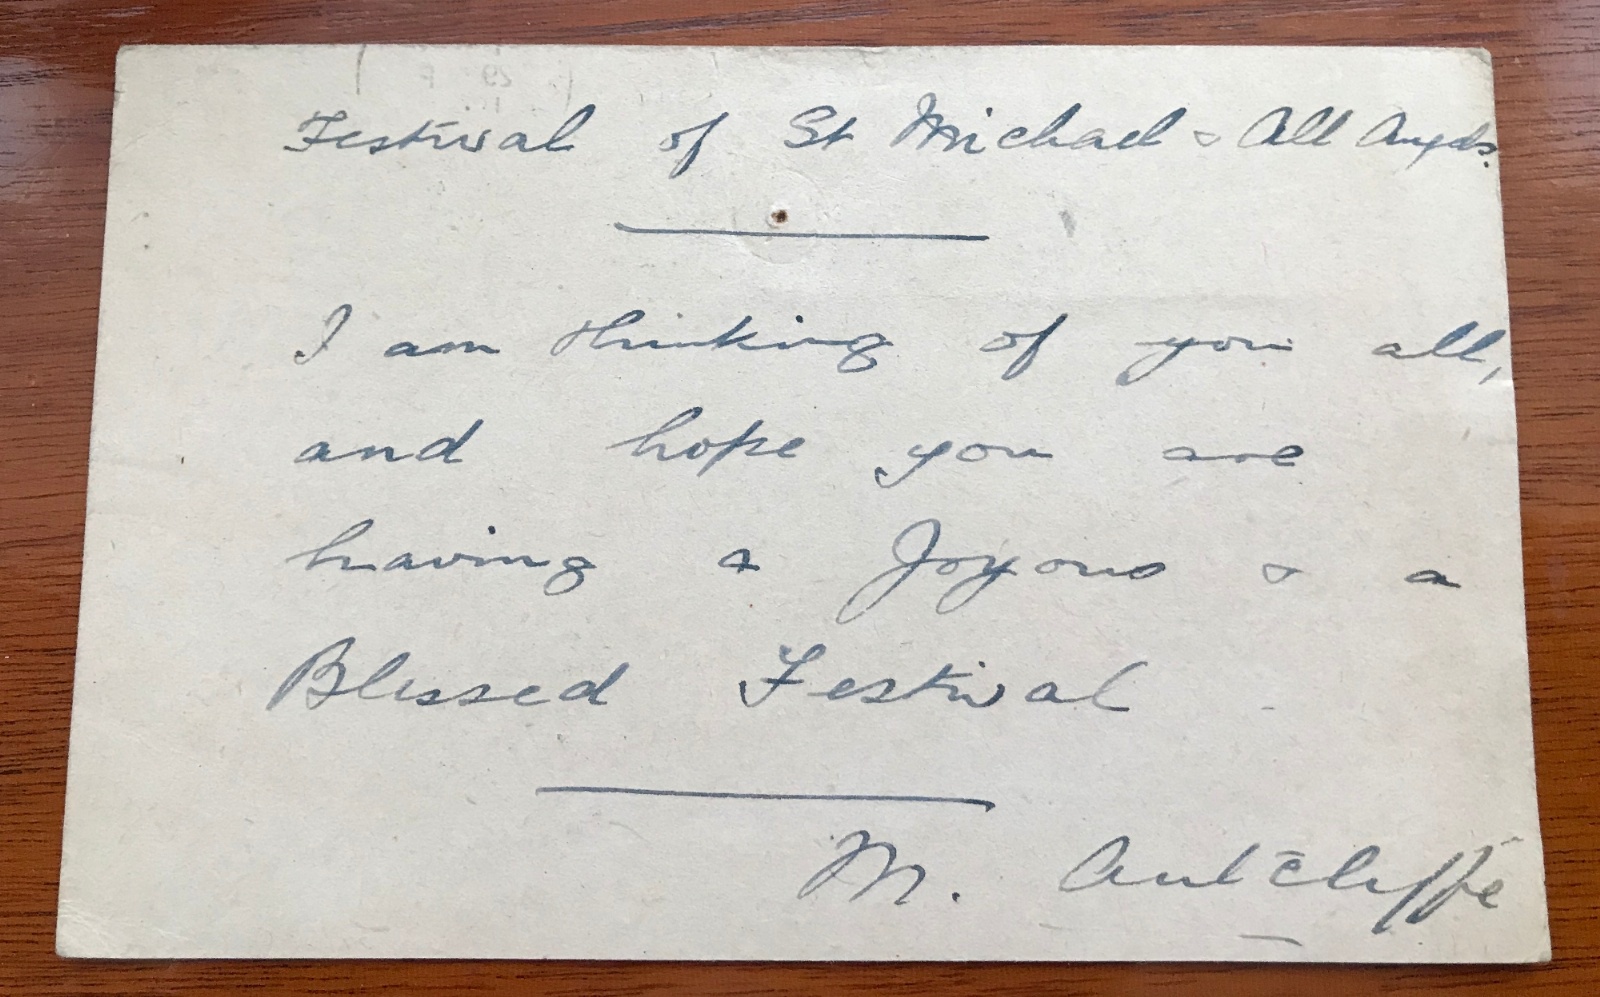 Festival of St Michael & All Angels.
I am thinking of you all,
and hope you are
having a Joyous & a
Blessed Festival
M.